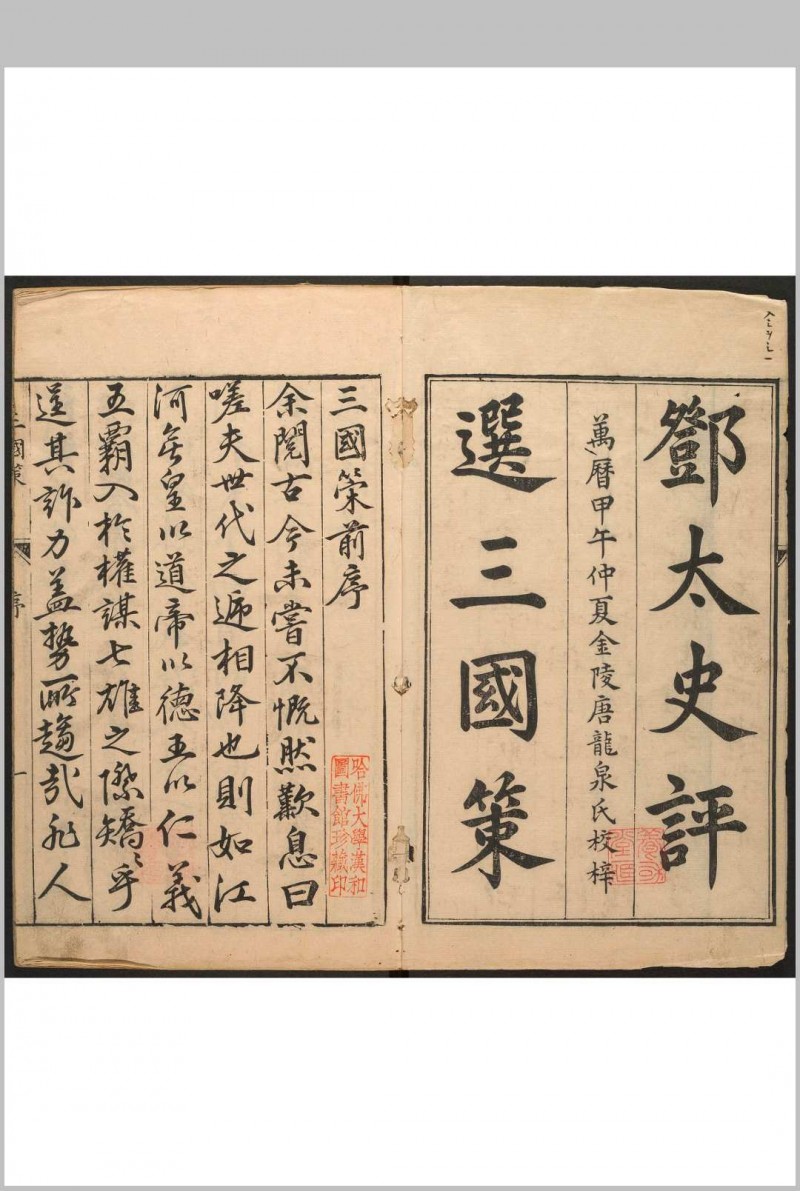 鄧太史評
萬曆甲午仲夏金陵唐龍泉氏校梓
選三國策
三國策前序
余閱古今未嘗不慨然歎息曰
嗟夫世代之遞相降也則如江
河矣皇以道帝以德王以仁義
五霸入於權謀七雄之際矯〻乎
逞其詐力蓋勢所趨哉非人
三國策
序
一
哈佛大學漢和
圖書館珍藏印